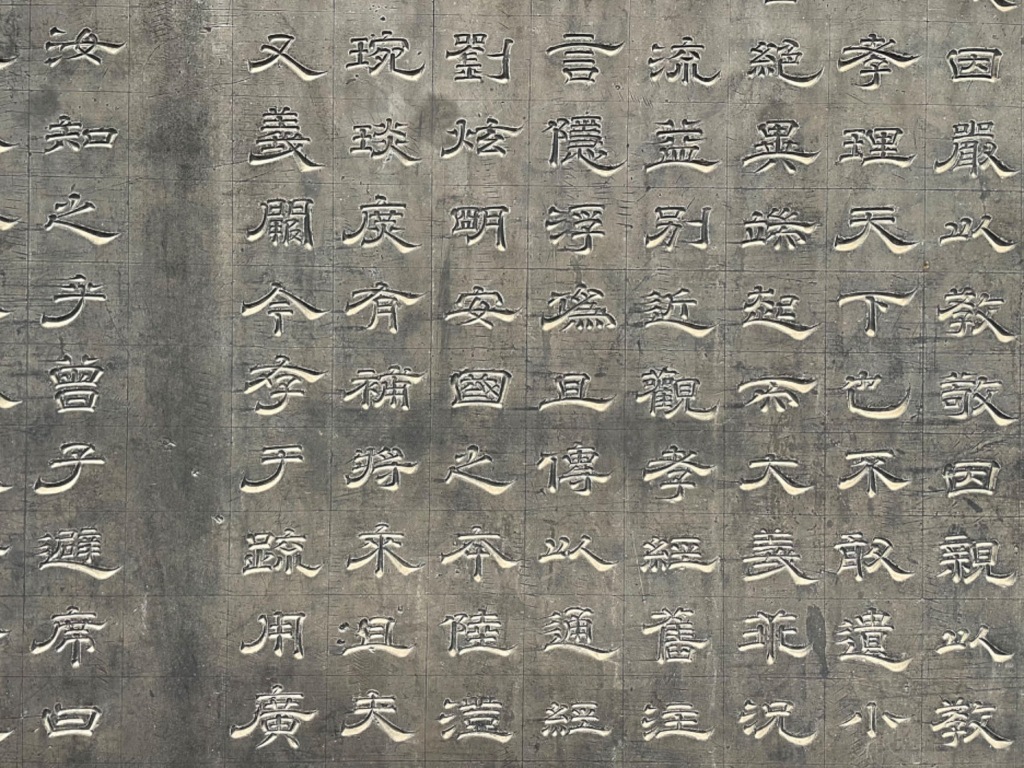 因嚴以教敬因親以教
孝理天下也不敢遺小
絕異端起而大義乖況
流益別近觀孝經舊注
言隱浮僞且傳以通經
劉炫明安國之本陸澄
琬琰庶有補將來且夫
又義闕今存于疏用廣
汝知之乎曾子避席曰